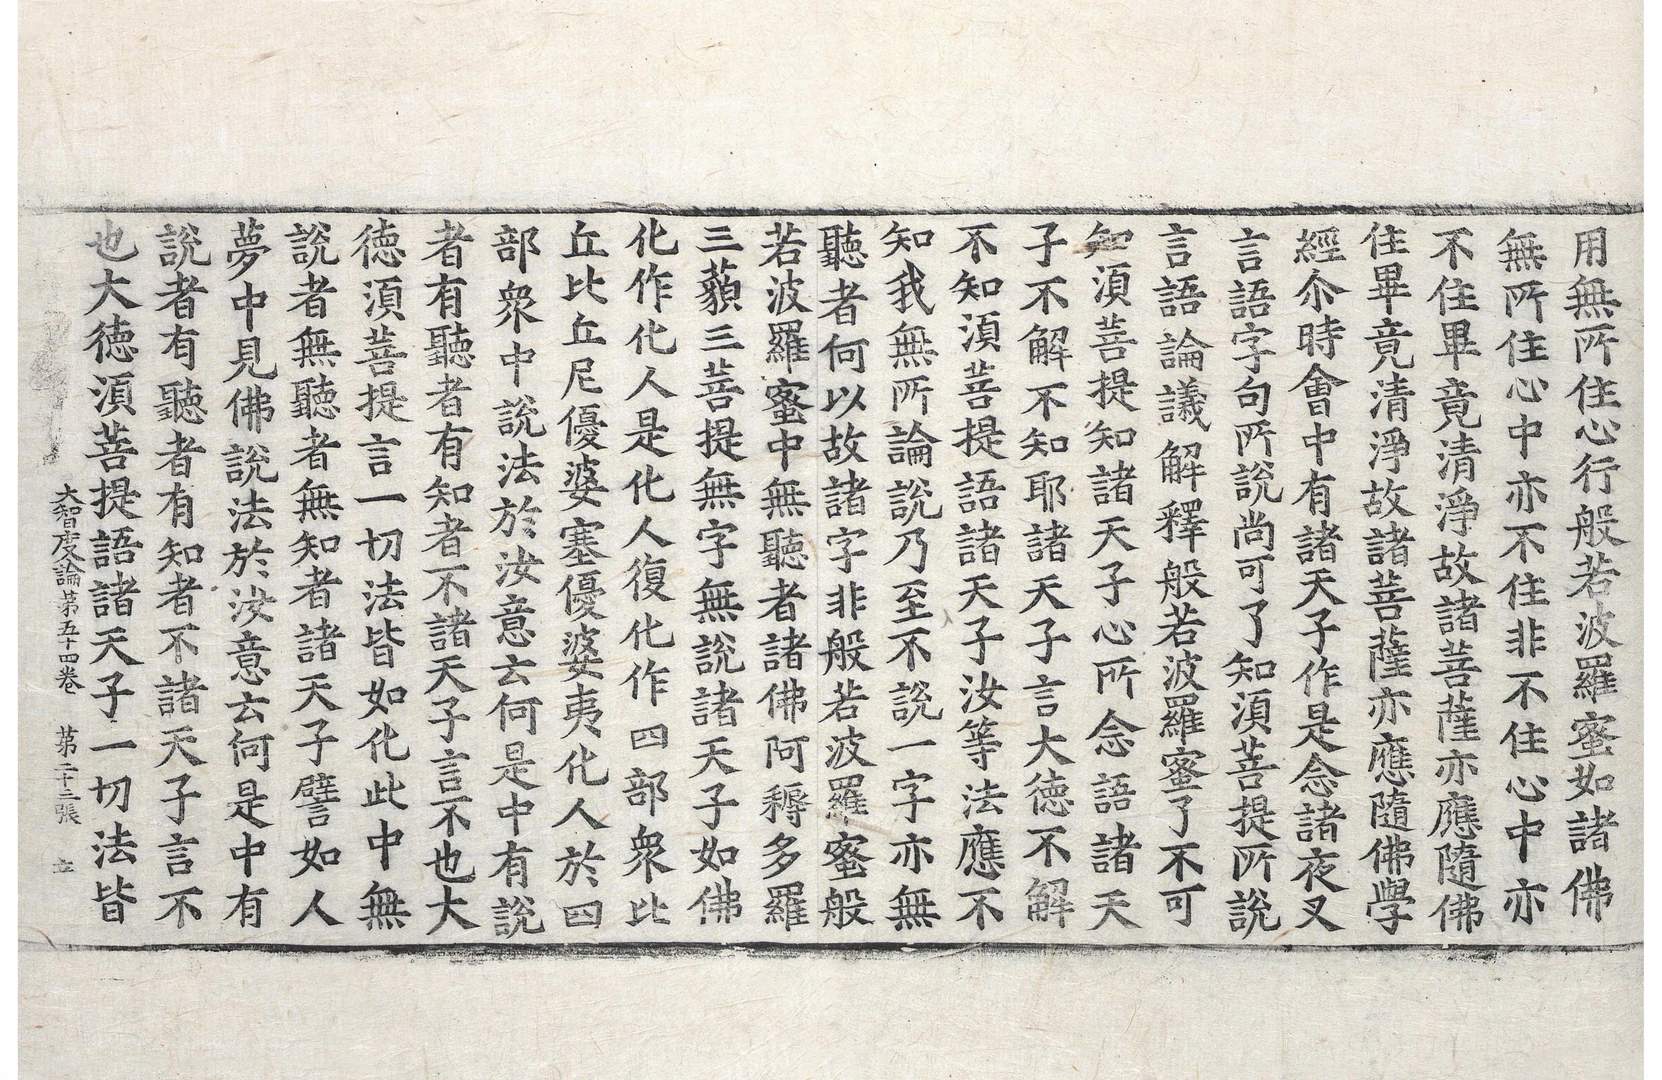 用無所住心行般若波羅蜜如諸佛
無所住心中亦不住非不住心中亦
不住畢竟清淨故諸菩薩亦應隨佛
住畢竟清淨故諸菩薩亦應隨佛學
經尒時會中有諸天子作是念諸夜叉
言語字句所說尚可了知須菩提所說
言語論議解釋般若波羅蜜了不可
知須菩提知諸天子心所念語諸天
子不解不知耶諸天子言大德不解
不知須菩提語諸天子汝等法應不
知我無所論說乃至不說一字亦無
聽者何以故諸字非般若波羅蜜般
若波羅蜜中無聽者諸佛阿耨多羅
三藐三菩提無字無說諸天子如佛
化作化人是化人復化作四部衆比
丘比丘尼優婆塞優婆夷化人於四
部衆中說法於汝意云何是中有說
者有聽者有知者不諸天子言不也大
德須菩提言一切法皆如化此中無
說者無聽者無知者諸天子譬如人
夢中見佛說法於汝意云何是中有
說者有聽者有知者不諸天子言不
也大德須菩提語諸天子一切法皆
大智度論第五十四卷 第二十三張 立